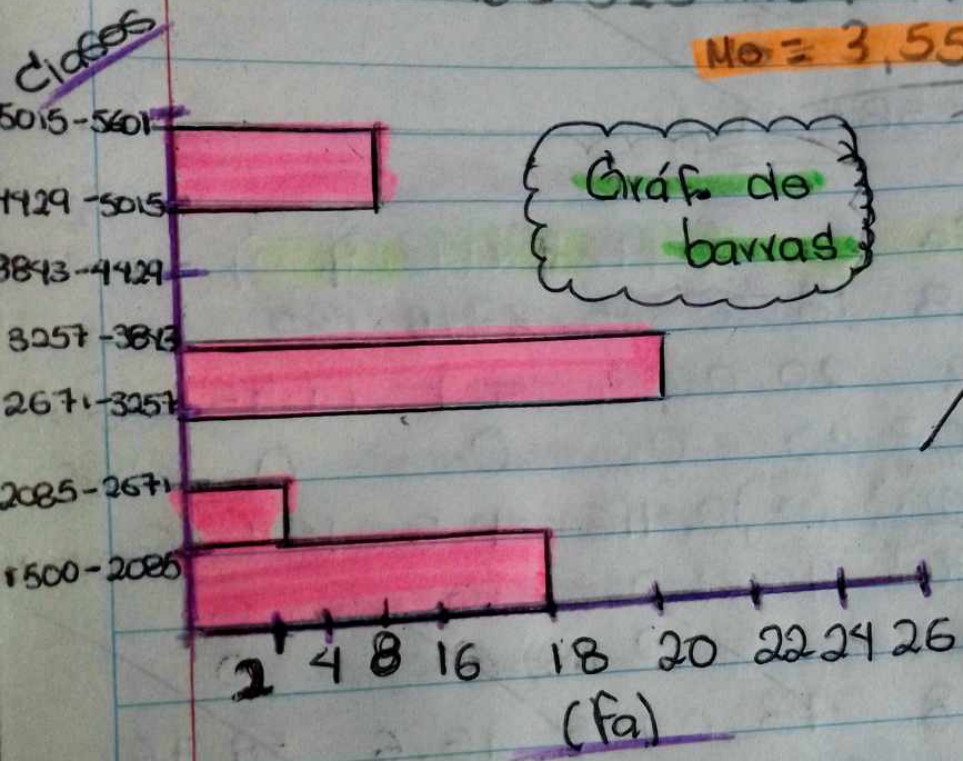 Mo = 3,55
Clases
5015-5601
4429-5015
3843-4429
3257-3843
2671-3257
2085-2671
1500-2085
Gráf. de
barras
2 4 8 16 18 20 22 24 26
(Fa)